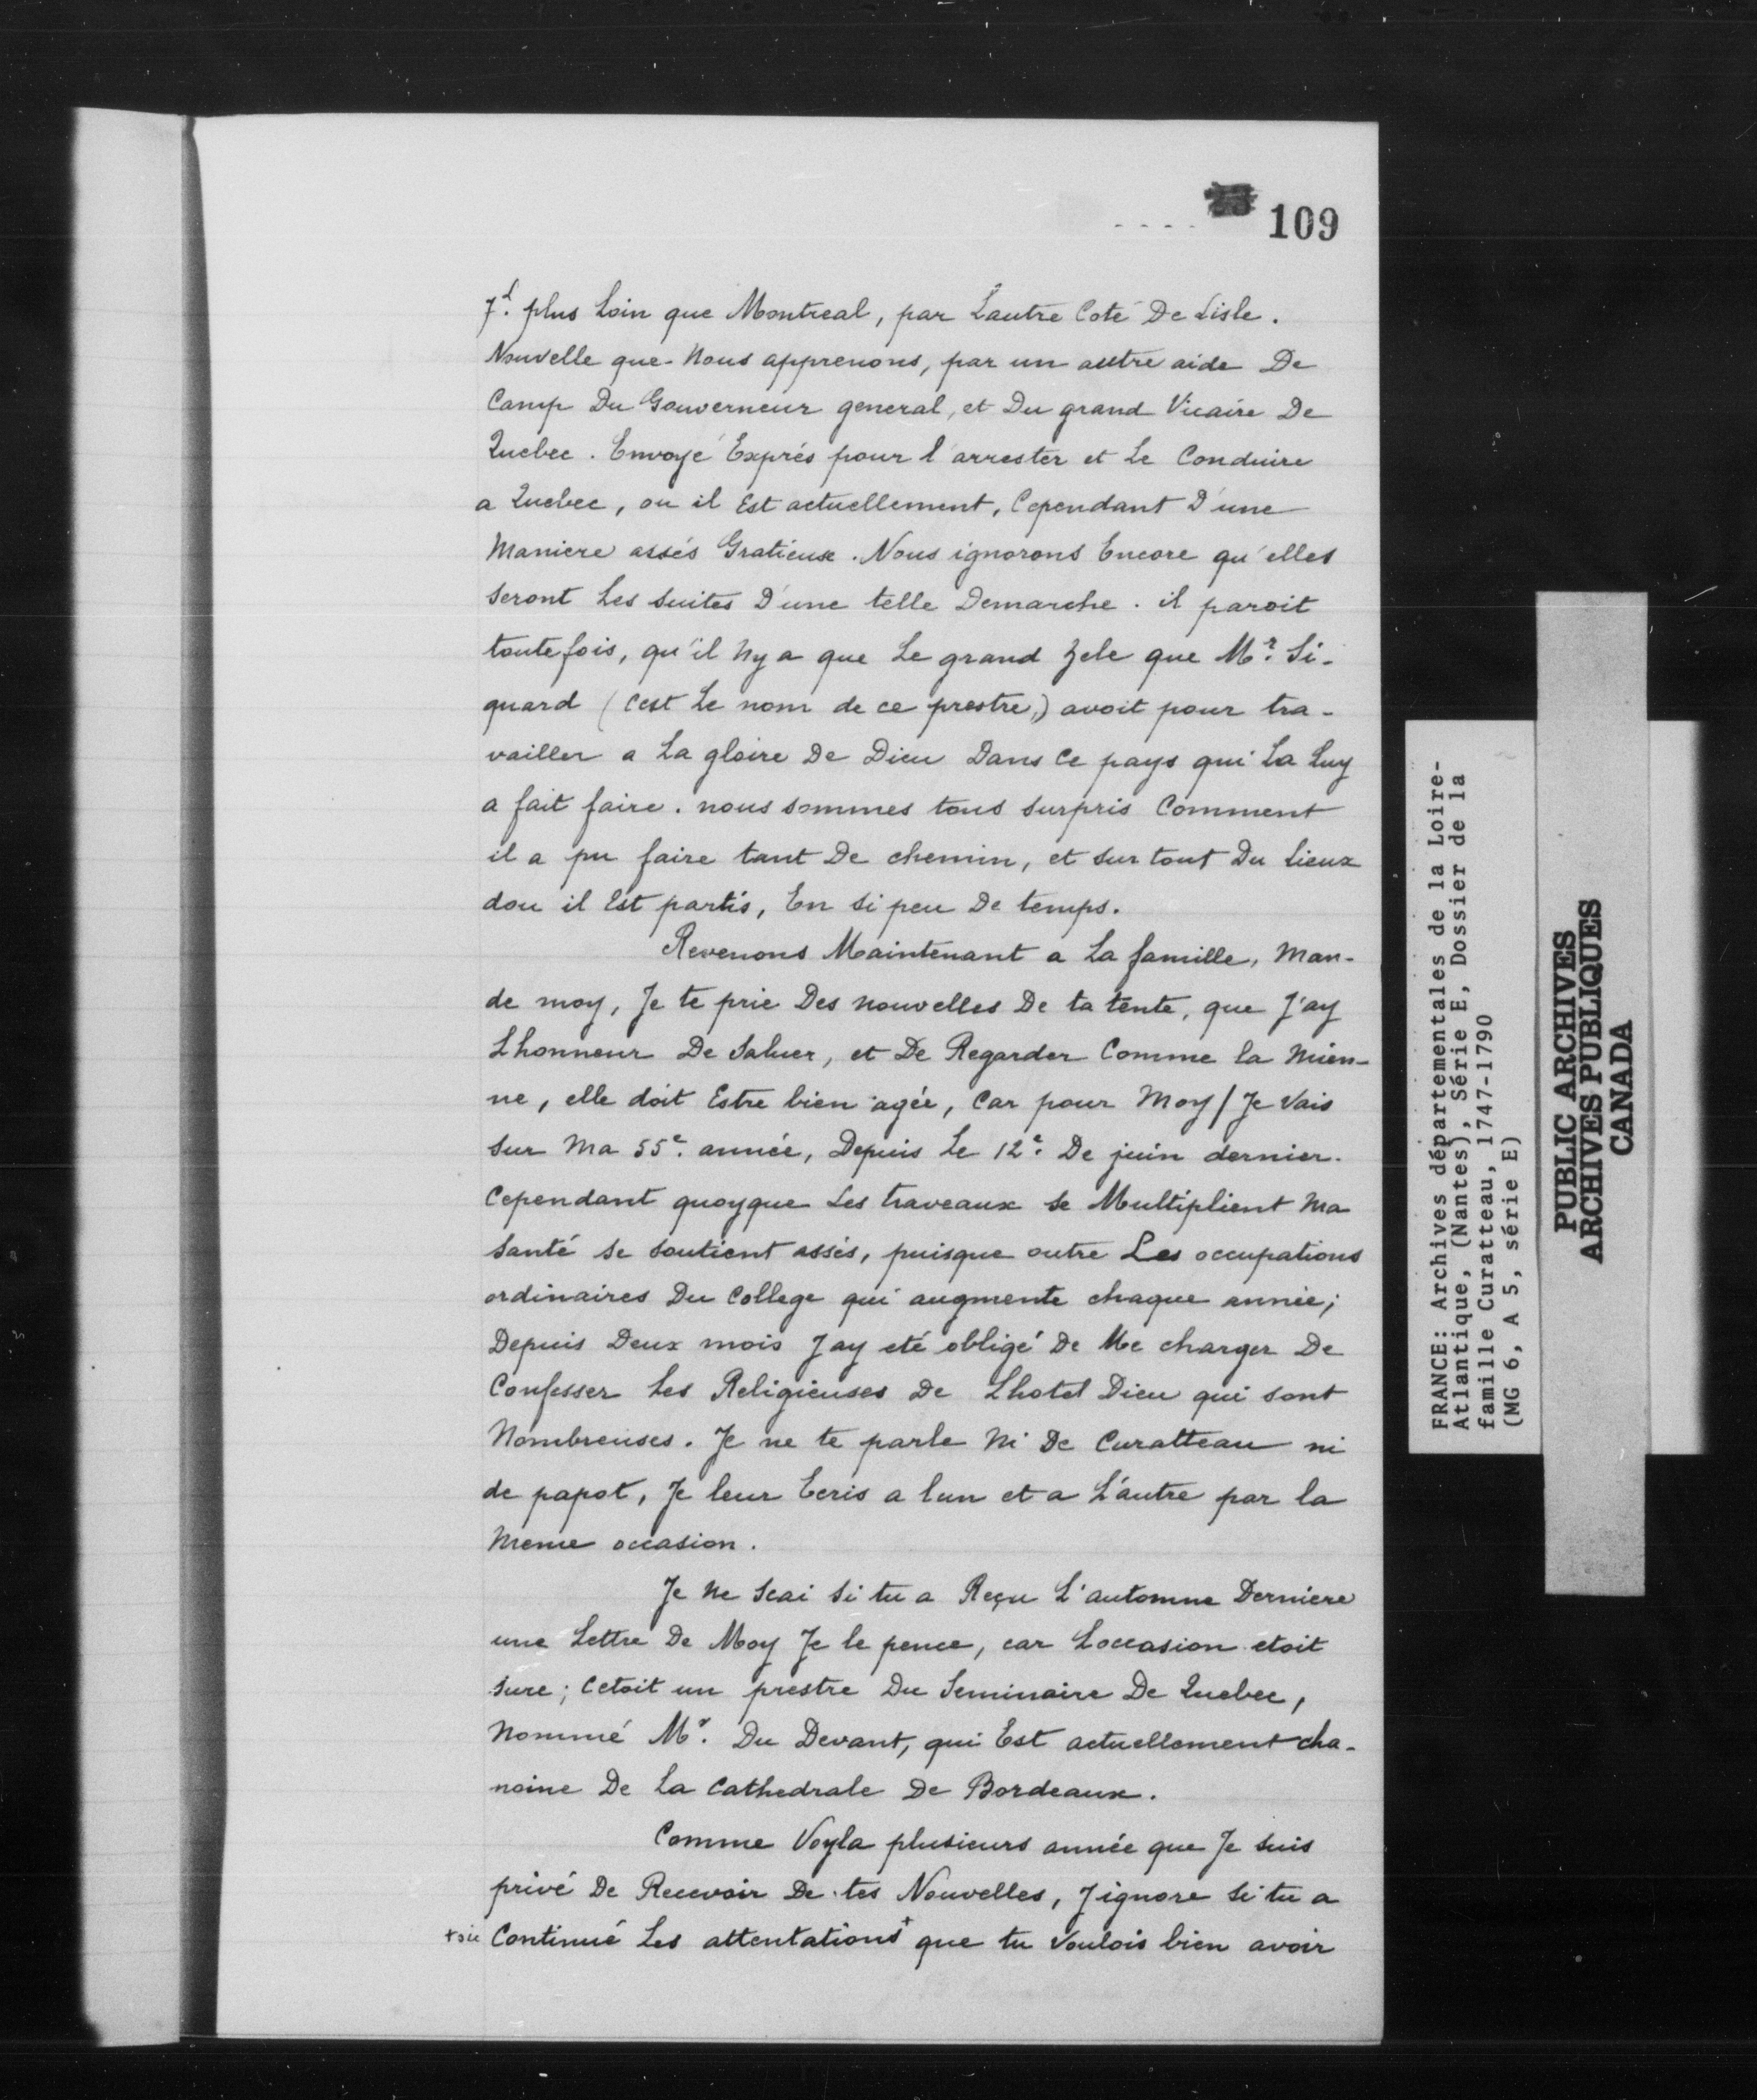 109
7.d plus Loin que Montreal, par L'autre Coté De Lisle.
Nouvelle que Nous apprenons, par un autre aide De
Camp Du Gouverneur general, et Du grand Vicaire De
Quebec. Envoyé Exprés pour l'arrester et Le Conduire
a Quebec, ou il Est actuellement, Cependant D'une
Maniere assés Gratieux. Nous ignorons Encore qu'elles
seront Les suites D'une telle Demarche. il paroit
toutefois, qu'il Ny a que Le grand Zele que Mr. Si-
guard (C'est Le nom de ce prestre,) avoit pour tra-
vailler a La gloire De Dieu Dans Ce pays qui La Luy
a fait faire. nous sommes tous surpris Comment
il a pu faire tant De chemin, et sur tout Du Lieux
dou il Est partis, En si peu De temps.
Revenons Maintenant a La famille, Man-
de moy, Je te prie Des nouvelles De ta tente, que J'ay
Lhonneur De Saluer, et De Regarder Comme la Mien-
ne, elle doit Estre bien agée, Car pour Moy / Je Vais
sur Ma 55e. année, Depuis Le 12e. De juin dernier.
Cependant quoyque Les traveaux se Multiplient Ma
Santé se soutient assés, puisque outre Les occupations
ordinaires Du College qui augmente chaque année;
Depuis Deux mois Jay eté obligé De Me charger De
Confesser Les Religieuses De Lhotel Dieu qui sont
Nombreuses. Je ne te parle Ni De Curatteau ni
de papot, Je leur Ecris a lun et a L'autre par la
Meme occasion.
Je Ne Scai Si tu a Reçu L'automne Derniere
une Lettre De Moy Je le pence, car Loccasion etoit
sure; Cetoit un prestre Du Seminaire De Quebec,
Nommé Mr. Du Devant, qui Est actuellement cha-
noine De La Cathedrale De Bordeaux.
Comme Voyla plusieurs année que Je suis
privé De Recevoir De tes Nouvelles, J'ignore si tu a
+sic Continué Les attentations+ que tu Voulois bien avoir
FRANCE: Archives départementales de la Loire-
Atlantique, (Nantes), Série E, Dossier de la
famille Curatteau, 1747-1790
(MG 6, A 5, série E)
PUBLIC ARCHIVES
ARCHIVES PUBLIQUES
CANADA